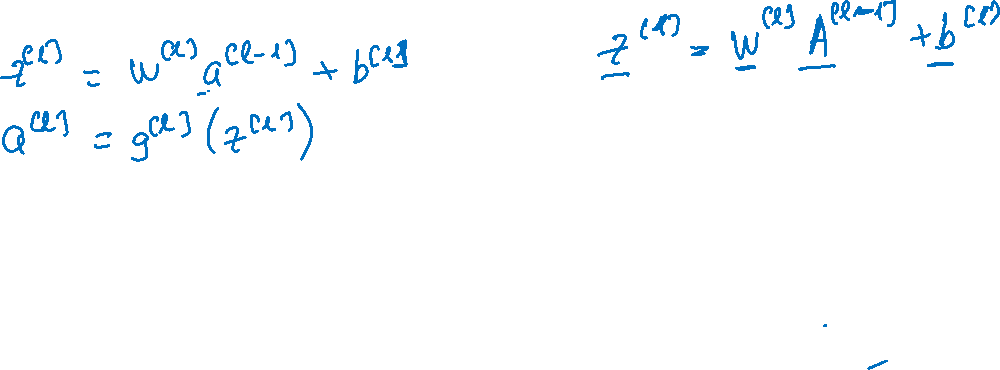 z^[l] = W^[l] a^[l-1] + b^[l]
a^[l] = g^[l] (z^[l])
Z^[l] = W^[l] A^[l-1] + b^[l]